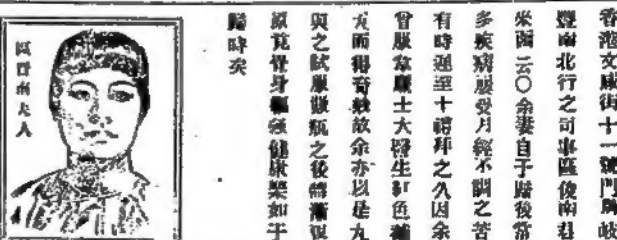 香港文咸街十一號門牌岐
豐南北行之司事區俊南君
來函云○余妻自于歸後常
多疾病屢受月經不調之苦
有時遲至十禮拜之久因余
曾服韋廉士大醫生紅色補
丸而得奇效故余亦以是丸
與之試服數瓶之後漸復
原竟得身軀強健康樂如于
歸時矣
區南夫人